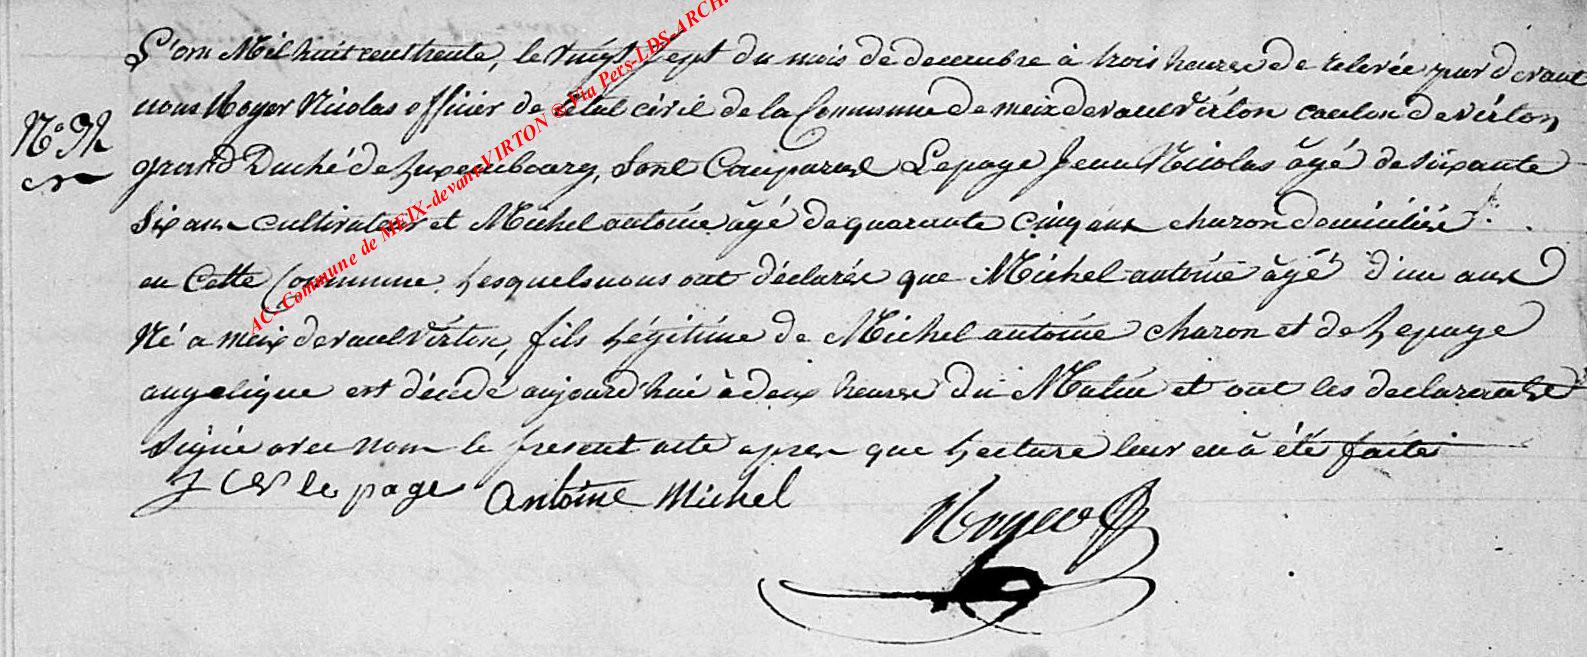 L'an Mil huit cent trente, le vingt sept du mois de decembre à trois heures de relevée par devant
nous Noyer Nicolas officier de l'état civil de la Commune de meix devant Virton canton de virton
N°
grand Duché de Luxembourg, Sont Comparus Lepage Jean Nicolas âgé de soixante
Six ans cultivateur et Michel antoine âgé de quarante cinq ans charon domiciliés
en Cette Commune. Lesquels nous ont déclarés que Michel antoine âgé d'un ans
Né a meix devant Virton, fils Légitime de Michel antoine charon et de Lepage
angelique est décédé aujourd'hui à deux heures du Matin et ont les declarants
Signé avec nous le présent acte apres que Lecture leur en à été faite
le page Antoine Michel
Noyer
AC. Commune de MEIX-devant-VIRTON © Via Pers-LDS-ARCH